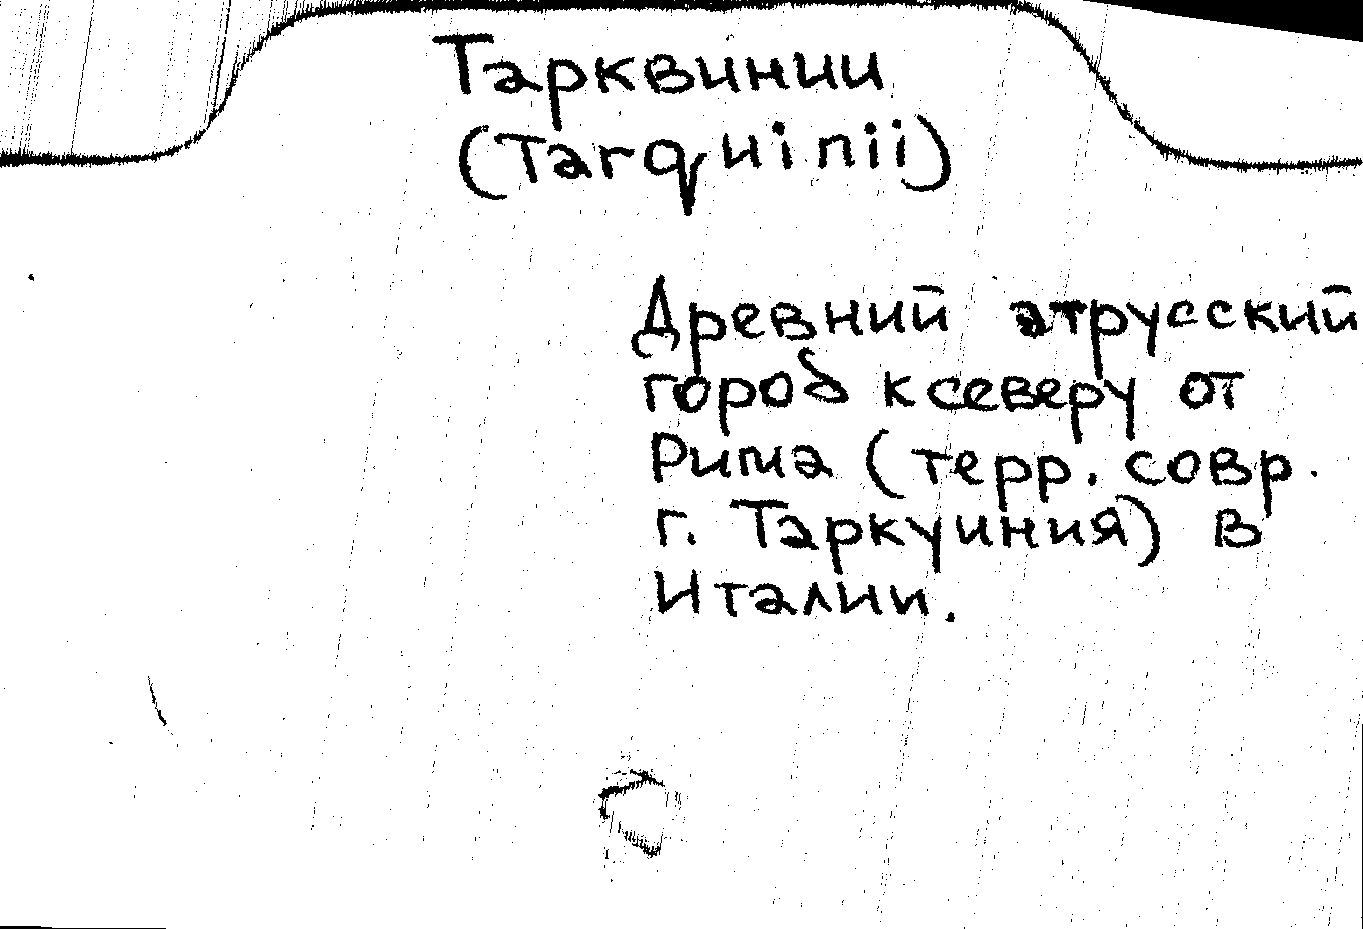 Тарквинии
(Tarquinii)
Древний этрусский
город к северу от
Рима (терр. совр.
г. Таркуиния) в
Италии.